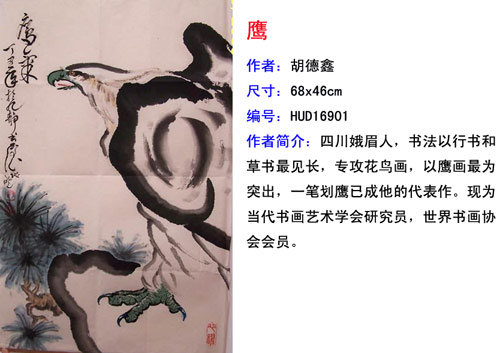 鹰
作者：胡德鑫
尺寸：68x46cm
编号：HUD16901
作者简介：四川峨眉人，书法以行书和
草书最见长，专攻花鸟画，以鹰画最为
突出，一笔划鹰已成他的代表作。现为
当代书画艺术学会研究员，世界书画协
会会员。